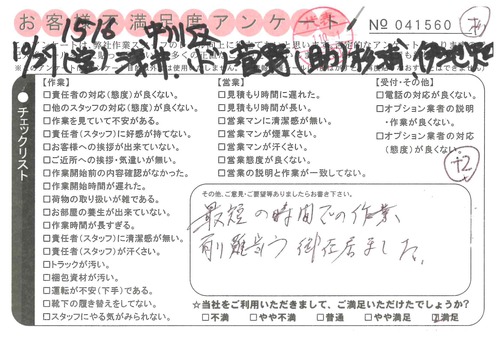 お客様満足度アンケート
№ 041560
15-16 中川区
チェックリスト
【作業】
□責任者の対応(態度)が良くない。
□他のスタッフの対応(態度)が良くない。
□作業を見ていて不安がある。
□責任者(スタッフ)に好感が持てない。
□お客様への挨拶が出来ていない。
□ご近所への挨拶・気遣いが無い。
□作業開始前の内容確認がなかった。
□作業開始時間が遅れた。
□荷物の取り扱いが雑である。
□お部屋の養生が出来ていない。
□作業時間が長すぎる。
□責任者(スタッフ)に清潔感が無い。
□責任者(スタッフ)が汗くさい。
□トラックが汚い。
□梱包資材が汚い。
□運転が不安(下手)である。
□靴下の履き替えをしてない。
□スタッフにやる気がみられない。
【営業】
□見積もり時間に遅れた。
□見積もり時間が長い。
□営業マンに清潔感が無い。
□営業マンが煙草くさい。
□営業マンが汗くさい。
□営業態度が良くない。
□営業の説明と作業が一致してない。
【受付・その他】
□電話の対応が良くない。
□オプション業者の説明
・作業が良くない。
□オプション業者の対応
(態度)が良くない。
+2
その他、ご意見・ご要望等ありましたらお書き下さい。
最短の時間での作業、
有難う御座居ました。
☆当社をご利用いただきまして、ご満足いただけたでしょうか?
□不満 □やや不満 □普通 □やや満足 ☑満足